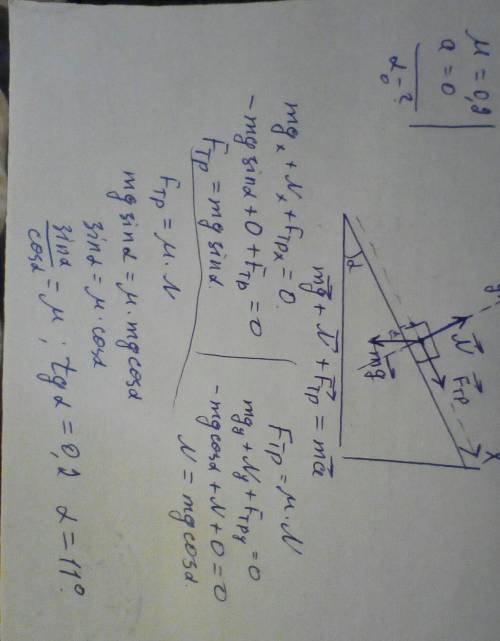 μ = 0,2
a = 0
α₀ - ?
y
x
N⃗
F⃗тр
mg⃗
α
α
mg⃗ + N⃗ + F⃗тр = ma⃗
mgₓ + Nₓ + Fтрₓ = 0
- mg sinα + 0 + Fтр = 0
Fтр = mg sinα
Fтр = μ · N
mgy + Ny + Fтрy = 0
- mg cosα + N + 0 = 0
N = mg cosα
Fтр = μ · N
mg sinα = μ · mg cosα
sinα = μ · cosα
sinα/cosα = μ ; tg α = 0,2 α = 11°.